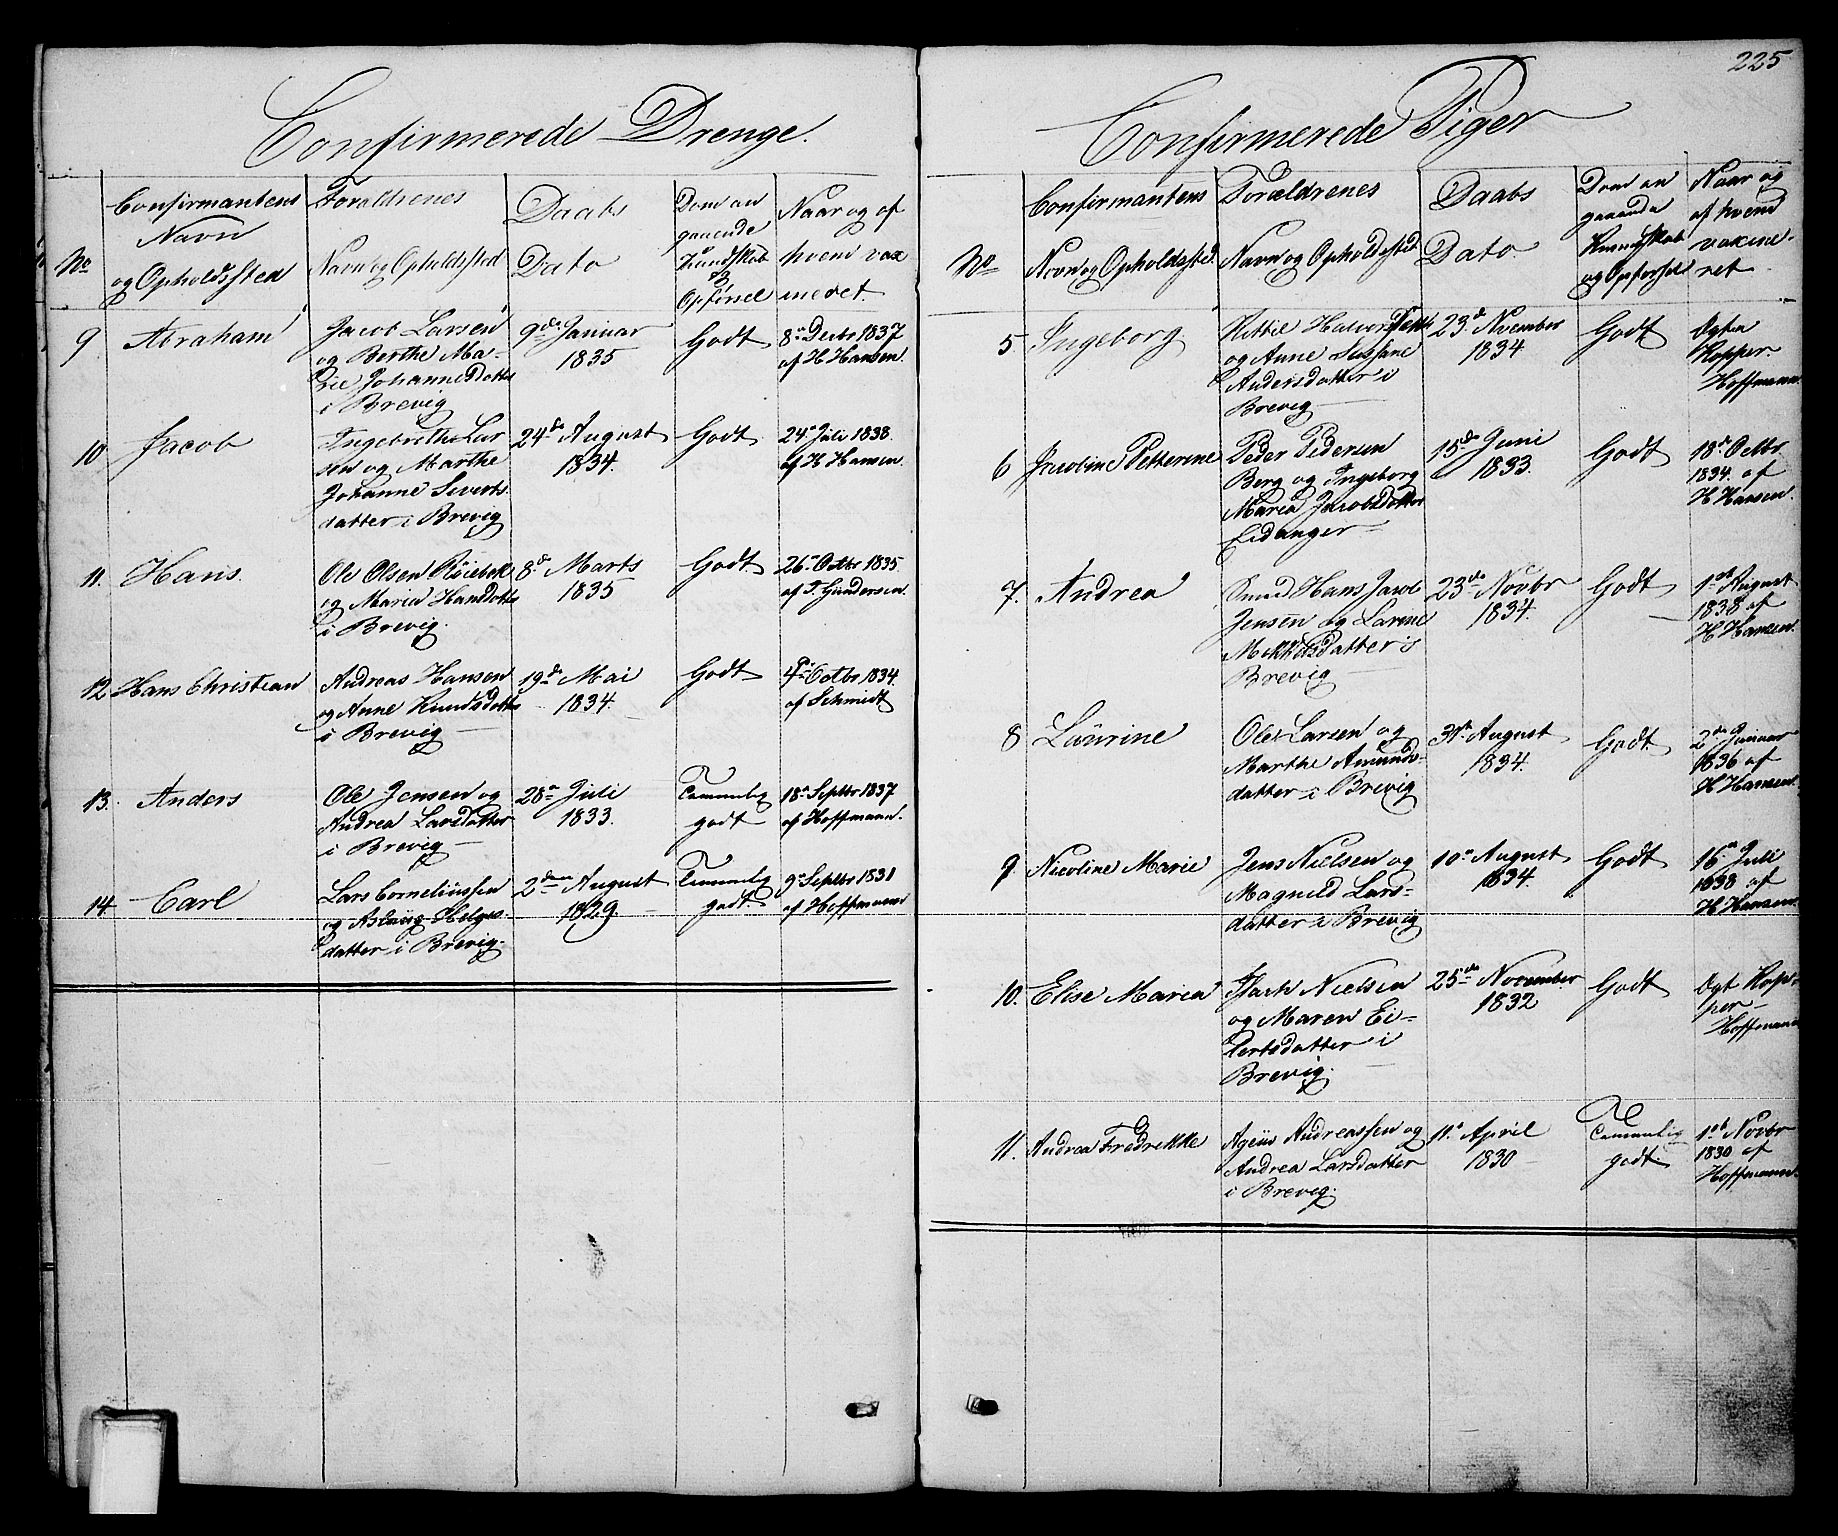 Confirmerede Drenge.
No
Confirmantens
Navn
og Opholdssted
Foreldrenes
Navn og Opholdssted
Daabs
Dato
Dom an
gaaende
Kundskab
&
Opførsel
Naar og af
hvem vax
ineret.
9
Abraham
Jacob Larsen
og Berthe Ma-
rie Johannesdatter
i Brevig
9de Januar
1835
Godt
8de Decbr 1837
af H. Hansen.
10
Jacob
Ingebreth Lar
sen og Marthe
Johanne Siverts
datter i Brevig
24de August
1834.
Godt
24de Juli 1838.
af H. Hansen.
11.
Hans.
Ole Olsen
og Maria Hansdatter
i Brevig.
8de Marts
1835
Godt.
26de Octbr 1835
af T. Gundersen.
12
Hans Christian
Andreas Hansen
og Anne Knudsdatter
i Brevig
19de Mai
1834.
Godt
Octbr 1834.
af Schmidt
13.
Anders
Ole Jensen og
Andrea Larsdatter
i Brevig
28de Juli
1833.
Temmelig
godt
18de Septbr 1837
af Hoffmann.
14
Carl
Lars Corneliussen
og Aslaug Helges-
datter i Brevig.
2den August
1829.
Temmelig
godt
9de Septbr 1831
af Hoffmann
225
Confirmerede Piger
No
Confirmantens
Navn og Opholdssted.
Forældrenes
Navn og Opholdssted
Daabs
Dato.
Dom an
gaaende
Kundskab
og Opførsel
Naar og
af hvem
vaxine-
ret.
5
Ingeborg
Kittil Halvorsen
og Anne Sussane
Andersdatter i
Brevig
23de November
1834
Godt
Kopper.
Hoffmann.
6
Jacobine Petterine
Peder Pedersen
Berg og Ingeborg
Maria Jacobsdatter
Eidanger
15de Juni
1833.
Godt
18de Octbr
1834. af
H. Hansen.
7.
Andrea
Hans Jacob
Jensen og Larine
i
Brevig
23de Novbr
1834.
Godt
1st August
1838 af
H. Hansen.
8
Laurine
Ole Larsen og
Marthe Amunds-
datter i Brevig
31te August
1834.
Godt.
2de Januar
1836 af
H. Hansen.
9
Nicoline Marie
Jens Nielsen og
Magnild Lars-
datter i Brevig
10de August
1834.
Godt
16de Juli
1838 af
H. Hansen.
10.
Elise Maria
Nielsen
og Maren Ei-
lertsdatter i
Brevig.
25de November
1832
Godt
Kop-
per
Hoffmann
11.
Andrea Fredrikke
Andreassen og
Andrea Larsdatter
i Brevig.
11te April
1830
Temmelig
godt.
1st Novbr
1830 af
Hoffmann.